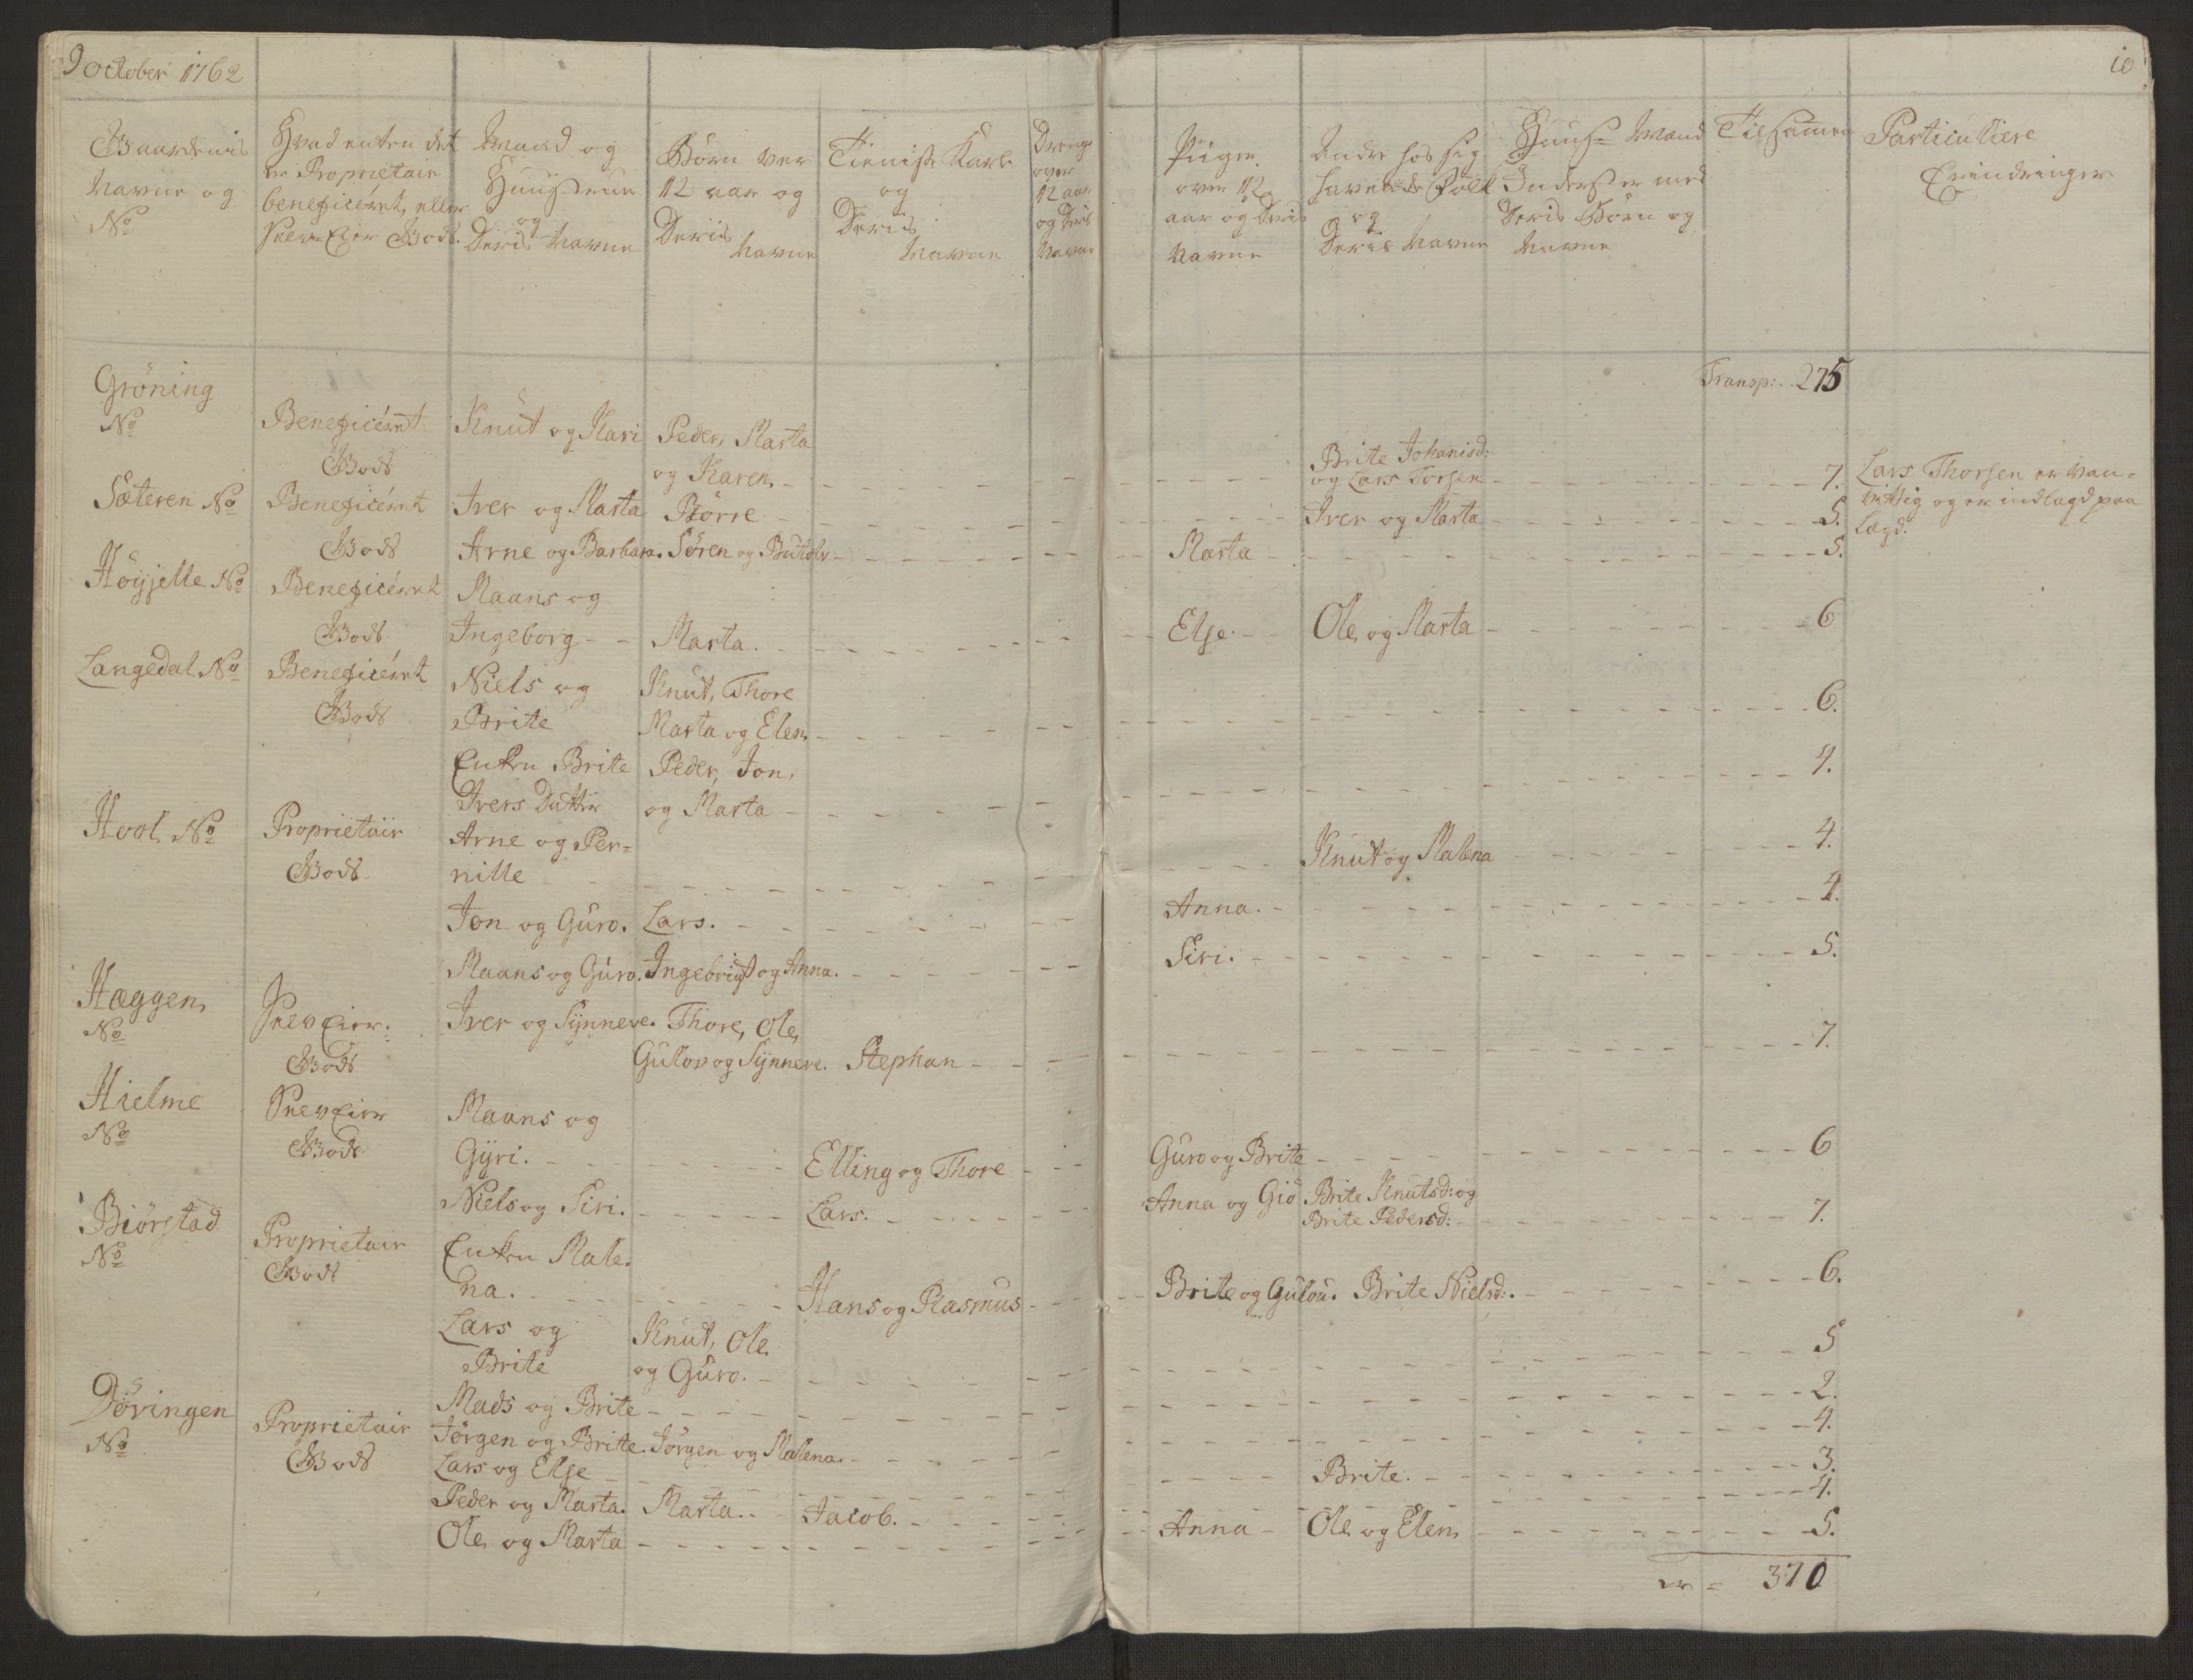 9 october 1762
10
Gaardenis Navne og No
Hvad enten det er Proprietair beneficéret, eller Selv Eier Godt.
Mand og Huustrue og Deris Navne
Börn over 12 aar og Deris Navne
Tieniste Karle og Deris Navne
Drenge over 12 aar og Deris Navne
Piiger over 12 aar og Deris Navne
Andre hos sig havende Folk og Deris Navne
Huus= Mænd Inderster med Deris Börn og Navne
Tilsamen
Particuliere Erindringer
Transp: 275
Gröning No Beneficéret Godt Knut og Kari Peder, Marta og Karen Brite Johanisd: og Lars Torsen 7. Lars Thorsen er van=
vittig og er indlagd paa
Lægd.
Sæteren No Beneficéret Godt Iver og Marta Börre Iver og Marta 5.
Arne og Barbara. Sören og Butolv Marta 5.
Höyjelle No Beneficéret Godt Maans og Ingeborg Marta. Else Ole og Marta 6
Langedal No Beneficéret Godt Niels og Brite Knut, Thore Marta og Elen 6.
Enken Brite Ivers Datter Peder, Jon, og Marta 4.
Hool No Proprietair Godt Arne og Per=
nille Knut og Malena 4.
Jon og Guro. Lars. Anna. 4.
Maans og Guro. Ingebrigt og Anna. Siri. 5.
Hæggen No Selv Eier Godt Iver og Synneve. Thore, Ole, Gulov og Synneve. Stephan 7.
Hielme No Selv Eier Godt Maans og Gyri. Elling og Thore Guro og Brite 6
Niels og Siri. Lars. Anna og Giö Brite Knutsd: og Brite Pedersd: 7.
Biörstad No Proprietair Godt Enken Male.
na. Hans og Rasmus Brite og Gulou. Brite Nielsd: 6.
Lars og Brite Knut, Ole og Guro. 5
Mads og Brite 2.
Döringen No Proprietair Godt Jörgen og Brite. Jörgen og Malena. 4.
Lars og Else Brite. 3.
Peder og Marta. Marta. Jacob. 4.
Ole og Marta Anna Ole og Elen 5.
370